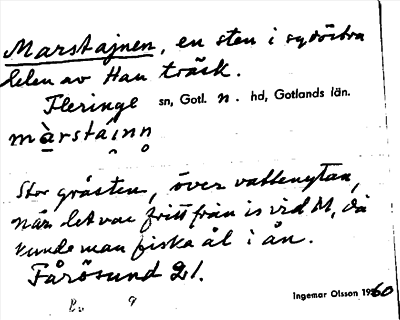 Marstajnen, en sten i sydöstra
delen av Hau träsk.
Fleringe sn, Gotl. n. hd, Gotlands län.
màrstáinn
Stor gråsten, över vattenytan,
när det var fritt från is vid M, då
kunde man fiska ål i ån.
Fårösund 21.
Ingemar Olsson 1960